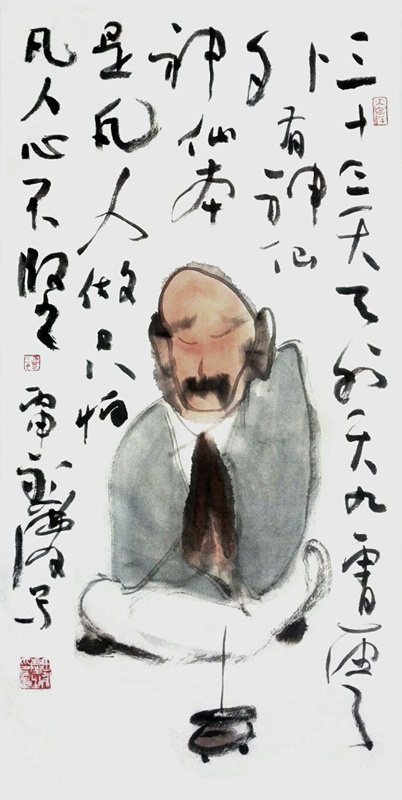 三十三天天外天九霄云
外有神仙
神仙本
是凡人做只怕
凡人心不坚